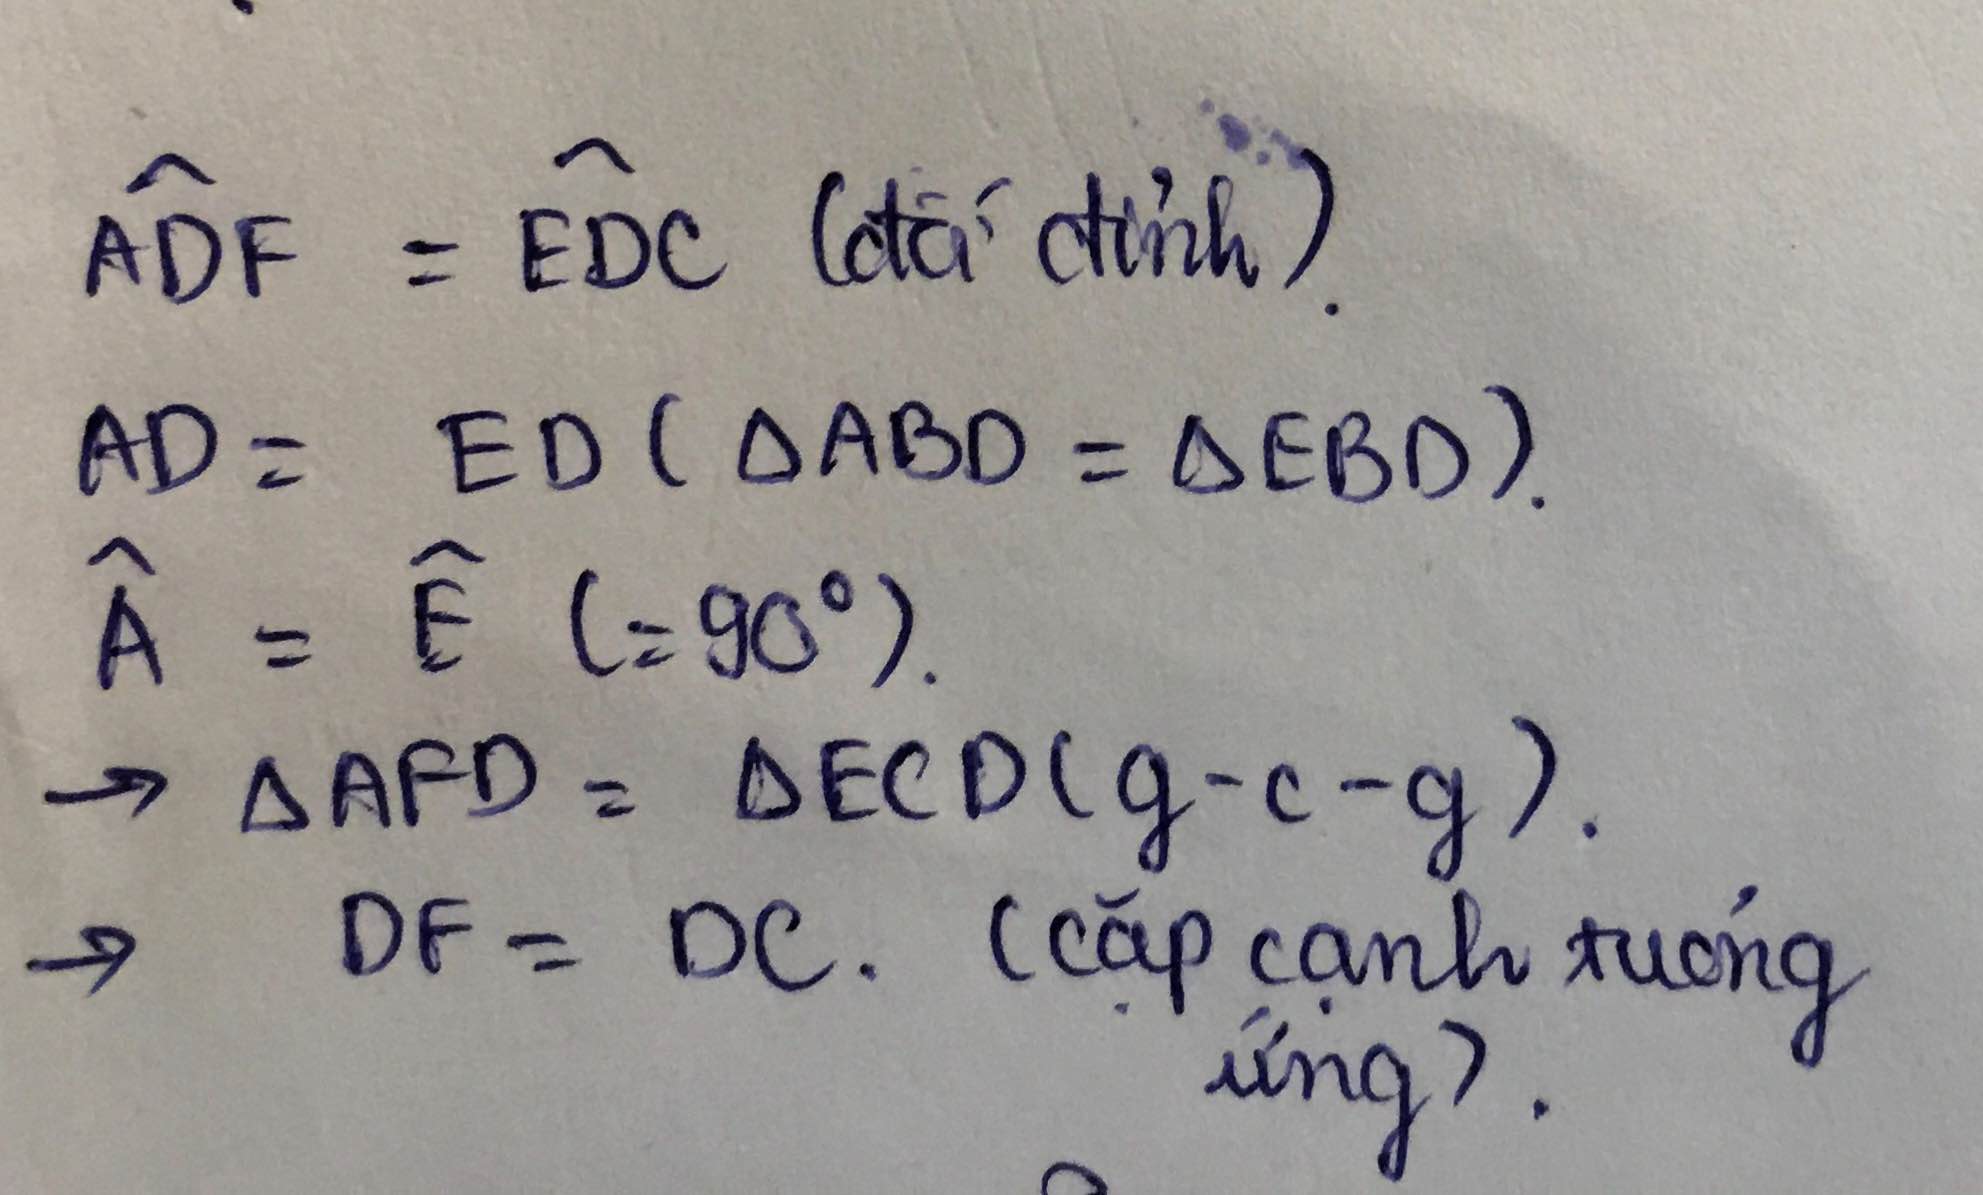 ADF^ = EDC^ (đối đỉnh).
AD = ED (ΔABD = ΔEBD).
Â = Ê (=90°).
→ ΔAFD = ΔECD (g-c-g).
→ DF = DC. (cặp cạnh tương
ứng).